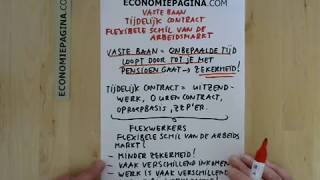 ECONOMIEPAGINA.COM
VASTE BAAN
TIJDELIJK CONTRACT
FLEXIBELE SCHIL VAN DE
ARBEIDSMARKT
VASTE BAAN = ONBEPAALDE TIJD
LOOPT DOOR TOT JE MET
PENSIOEN GAAT → ZEKERHEID!
TIJDELIJK CONTRACT = UITZEND-
WERK, 0 UREN CONTRACT,
OPROEPBASIS, ZZP'ER.
FLEXWERKERS
FLEXIBELE SCHIL VAN DE ARBEIDS
MARKT!
- MINDER ZEKERHEID!
- VAAK VERSCHILLEND INKOMEN
- WERK IS VAAK VERSCHILLEND
ECONOMIEPAGINA.COM
ECONOMIEPAGINA.COM